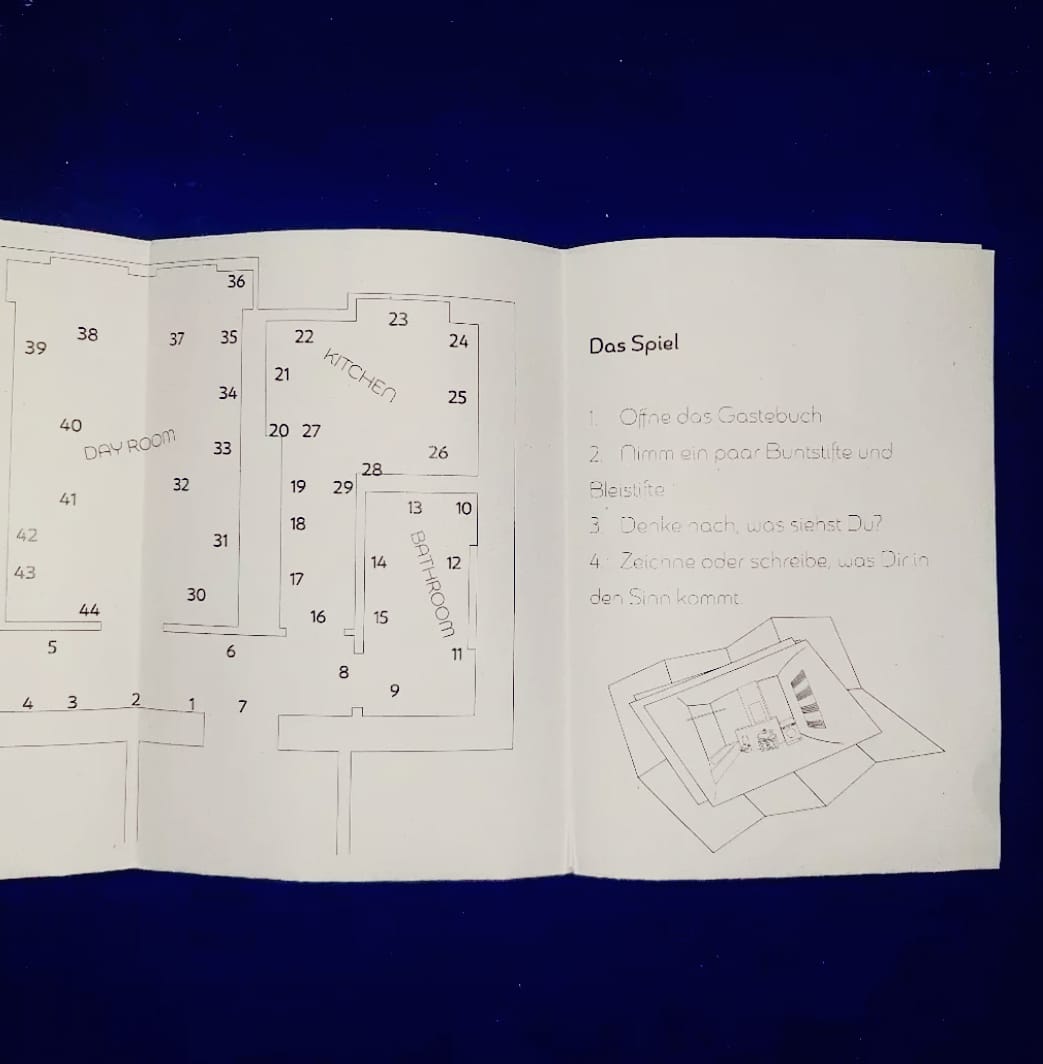 36
23
38
37
35
22
24
39
KITCHEN
21
34
25
40
20 27
DAY ROOM
33
26
28
32
19
29
41
18
13
10
42
31
14
12
BATHROOM
43
17
30
44
16
15
5
6
11
8
9
4
3
2
1
7
Das Spiel
1. Offne das Gastebuch
2. Nimm ein paar Buntstifte und
Bleistifte
3. Denke nach, was siehst Du?
4. Zeichne oder schreibe, was Dir in
den Sinn kommt